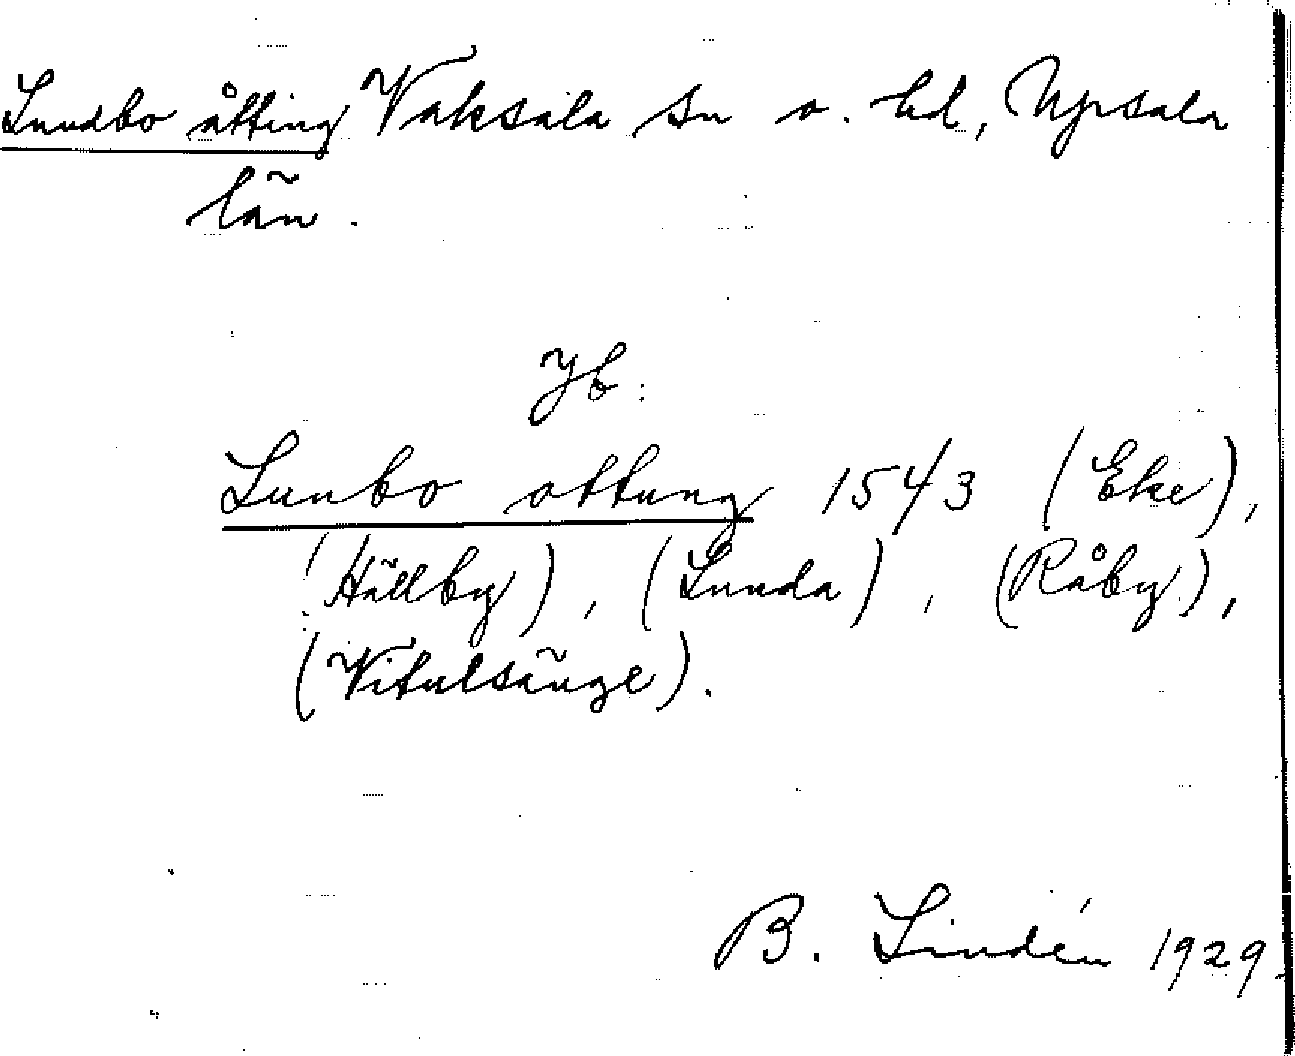 Lundbo åtting Vaksala sn o. hd, Upsala
län.
Jb:
Lunbo ottung 1543 (Eke),
(Hällby), (Lunda), (Råby),
(Vitulsänge).
B. Lindén 1929.